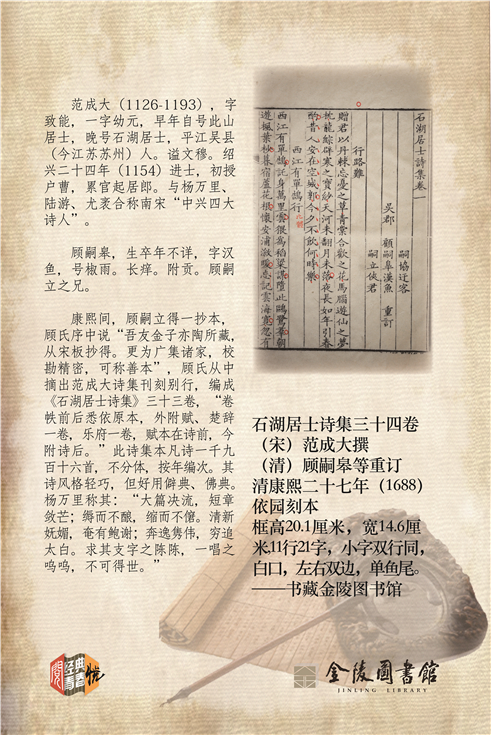 范成大（1126-1193），字
致能，一字幼元，早年自号此山
居士，晚号石湖居士，平江吴县
（今江苏苏州）人。谥文穆。绍
兴二十四年（1154）进士，初授
户曹，累官起居郎。与杨万里、
陆游、尤袤合称南宋“中兴四大
诗人”。
顾嗣皋，生卒年不详，字汉
鱼，号椒雨。长痒。附贡。顾嗣
立之兄。
康熙间，顾嗣立得一抄本，
顾氏序中说“吾友金子亦陶所藏，
从宋板抄得。更为广集诸家，校
勘精密，可称善本”，顾氏从中
摘出范成大诗集刊刻别行，编成
《石湖居士诗集》三十三卷，“卷
帙前后悉依原本，外附赋、楚辞
一卷，乐府一卷，赋本在诗前，今
附诗后。”此诗集本凡诗一千九
百十六首，不分体，按年编次。其
诗风格轻巧，但好用僻典、佛典。
杨万里称其：“大篇决流，短章
敛芒；缛而不酿，缩而不僒。清新
妩媚，奄有鲍谢；奔逸隽伟，穷追
太白。求其支字之陈陈，一唱之
呜呜，不可得世。”
石湖居士詩集卷一
吴郡
顧嗣皋漢魚
嗣協迂客
嗣立俠君
重訂
行路難
贈君以丹棘忘憂之草青棠合歡之花馬腦遊仙之夢
枕龍綜辟寒之寶紗天河未翻月未落夜長如年引春
酌昔人安在空城郭今夕不飲何時樂
西江有單鵠行
西江有單鵠託身萬里雲
石湖居士诗集三十四卷
（宋）范成大撰
（清）顾嗣皋等重订
清康熙二十七年（1688）
依园刻本
框高20.1厘米，宽14.6厘
米.11行21字，小字双行同，
白口，左右双边，单鱼尾。
——书藏金陵图书馆
阅经典
青春悦
金陵圖書館
JINLING LIBRARY